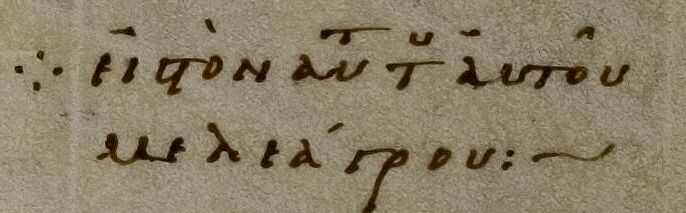 ⁘ εἰς τὸν αὐτ τυ αὐτοῦ
μελεάγρου:~